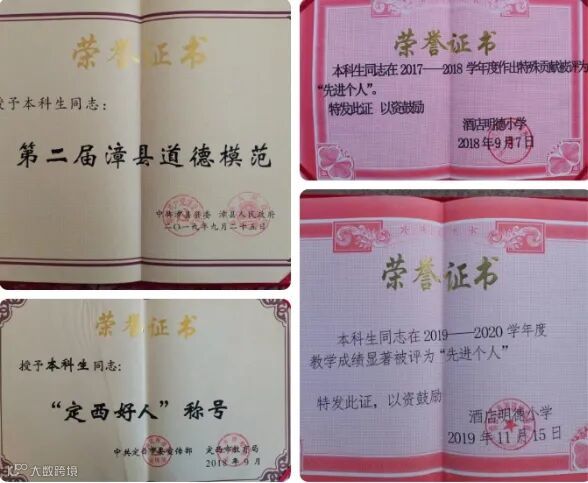 荣誉证书
授予本科生同志：
第二届漳县道德模范
中共漳县县委 漳县人民政府
二〇一九年九月二十五日
荣誉证书
本科生同志在2017——2018 学年度作出特殊贡献被评为
“先进个人”。
特发此证 以资鼓励
酒店明德小学
2018年9月7日
荣誉证书
授予本科生同志：
“定西好人”称号
中共定西市委宣传部 定西市教育局
2018年9月
荣誉证书
本科生同志在2019——2020学年度
教学成绩显著被评为“先进个人”
特发此证，以资鼓励
酒店明德小学
2019年11月15日
大数跨境